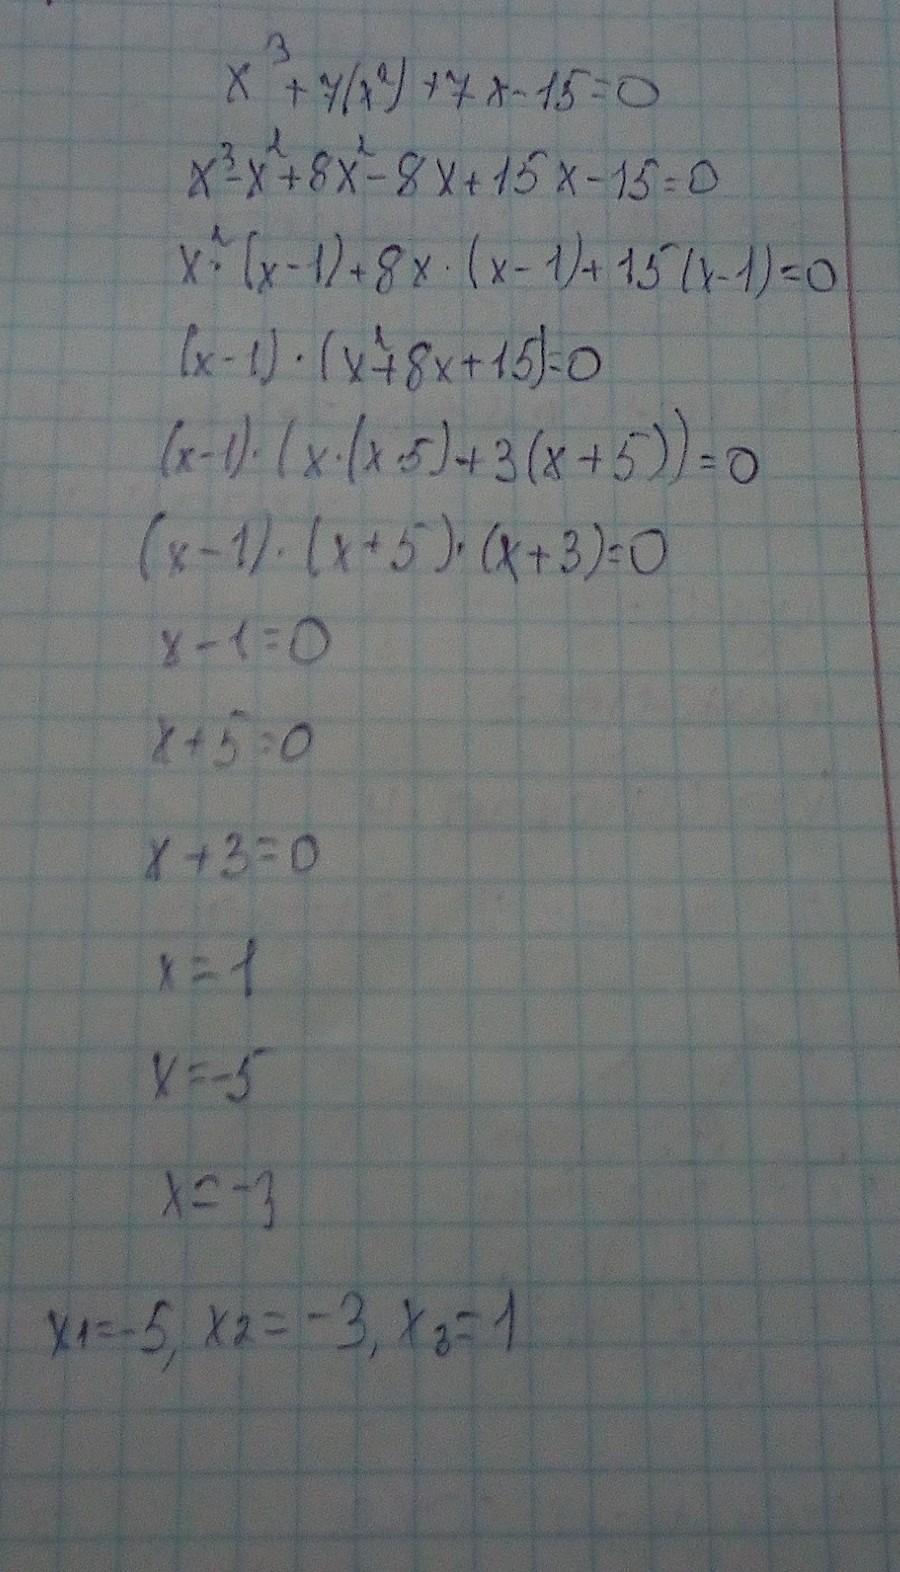 x³+7(x²)+7x-15=0
x³-x²+8x²-8x+15x-15=0
x²·(x-1)+8x·(x-1)+15(x-1)=0
(x-1)·(x²+8x+15)=0
(x-1)·(x·(x·5)+3(x+5))=0
(x-1)·(x+5)·(x+3)=0
x-1=0
x+5=0
x+3=0
x=1
x=-5
x=-3
x1=-5, x2=-3, x3=1